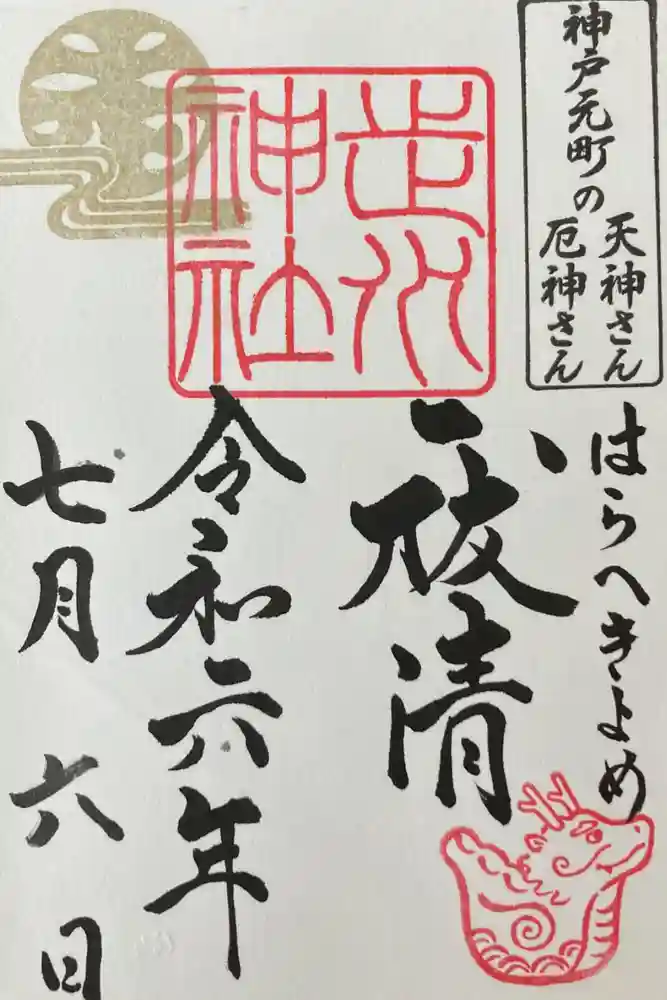 神戸元町の
天神さん
厄神さん
はらへきよめ
祓清
走水
神社
令和六年
七月六日